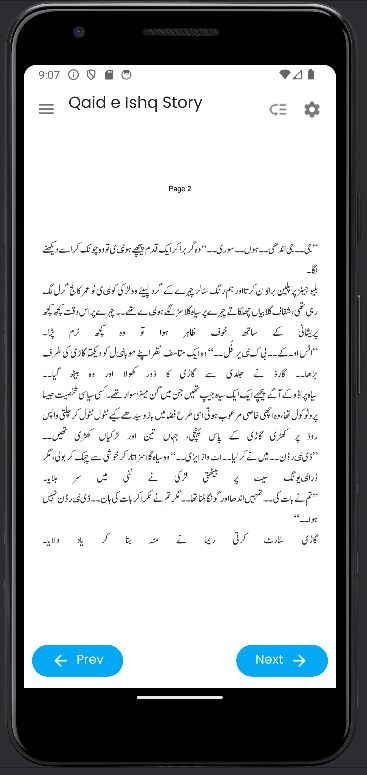 9:07
Qaid e Ishq Story
Page 2
”جی۔۔جی اندھی۔۔ہوں۔۔سوری۔۔“ وہ گڑبڑا کر ایک قدم پیچھے ہوئی تو وہ چونک کر اسے دیکھنے
لگا۔
بلیو جینز پر پلین براؤن کرتا اور ہم رنگ سٹالر چہرے کے گرد لپیٹے وہ لڑکی کوئی نو عمر کالج گرل لگ
رہی تھی، شفاف گلابیاں چھلکاتے چہرے پر سیاہ گلاسز لگے ہوئے تھے۔۔ چہرے پر اس وقت کچھ کچھ
پریشانی کے ساتھ خوف ظاہر ہوا تو وہ کچھ نرم پڑا۔
”اٹس او۔کے۔۔بی ک۔۔۔“ وہ ایک متاسف نظر اپنے موبائل کو دیکھتا گاڑی کی طرف
بڑھا۔۔ گارڈ نے جلدی سے گاڑی کا ڈور کھولا اور وہ بیٹھ گیا۔۔
سیاہ پراڈو کے آگے پیچھے ایک ایک سیاہ جیپ تھیں جن میں گن مینز سوار تھے۔ کسی سیاسی شخصیت جیسا
پروٹوکول تھا، وہ اچھی خاصی مرعوب ہوتی اسی طرح فضا میں بازو سیدھے کیے ٹٹول ٹٹول کر چلتی واپس
روڈ پر کھڑی گاڑی کے پاس پہنچی، جہاں تین اور لڑکیاں کھڑی تھیں۔۔
۔۔میں نے کر لیا۔۔اٹ واز ایزی۔۔“ وہ سیاہ گلاسز اتار کر خوشی سے چہک کر بولی، مگر
ڈرائیونگ سیٹ پر بیٹھی لڑکی نے نفی میں سر ہلایا۔
”تم نے بات کی۔۔تمہیں اندھا اور گونگا بننا تھا۔۔مگر تم نے ٹکرا کر بات کی ہاں۔۔
ہوا۔۔“
گاڑی سٹارٹ کرتی ریما نے منہ بنا کر یاد دلایا۔
Prev
Next